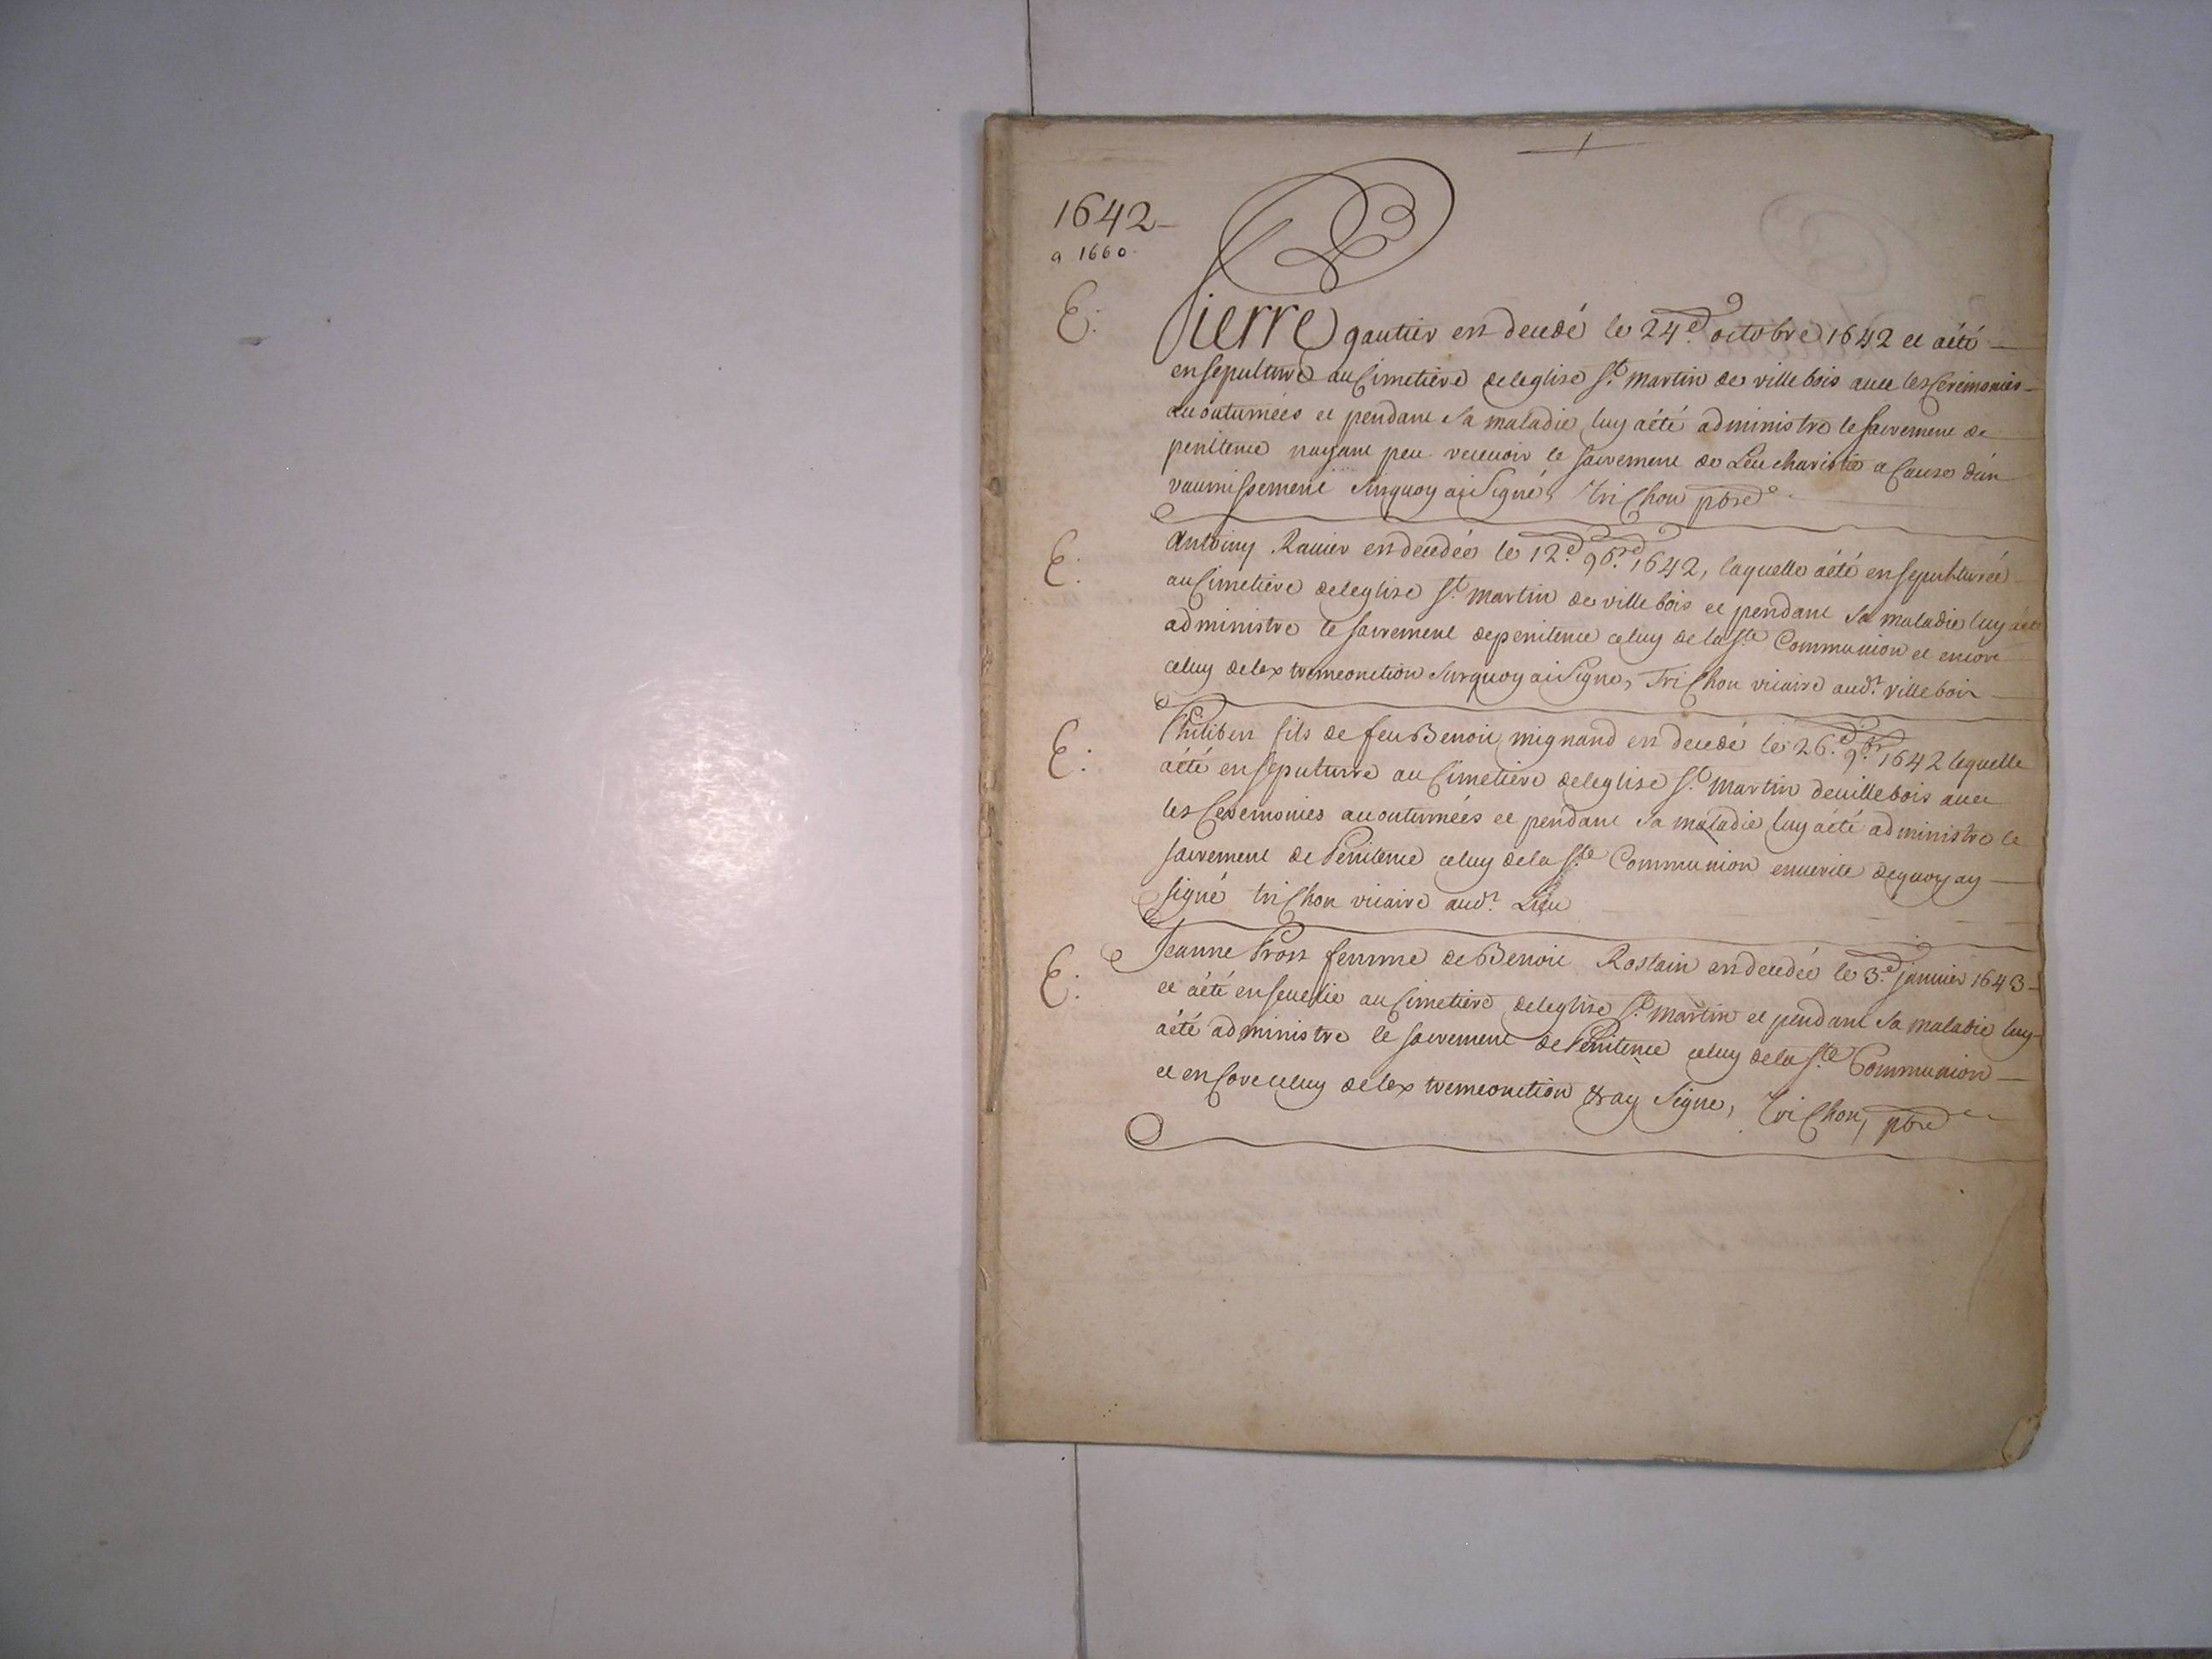 1
1642
a 1660
E:
Pierre gautier est decedé le 24.e octobre 1642 et aété
ensepulturé au Cimetiere deleglise St. martin de villebois auec les Ceremonies
accoutumées et pendant sa maladie luy aété administre le sacrement de
penitence nayant peu receuoir le sacrement de Leucharistie a Cause dún
vaumissement surquoy ai signé, trichon pbre
E:
Antoiny Rauier est decedée le 12.e 9bre. 1642, laquelle aété ensepulturée
au Cimetiere deleglise St. martin de villebois et pendant sa maladie luy aété
administre le sacrement depenitence celuy de la Ste. Communion et encore
celuy delextremeonction surquoy ai signe, Trichon vicaire aud.t villebois
E:
Philibert fils de feu Benoit mignand est decedé le 26.e 9bre. 1642 lequelle
aété ensepulturre au Cimetiere deleglise St. martin deuillebois auec
les Ceremonies accoutumées et pendant sa maladie luy aété administre le
sacrement de Penitence celuy dela Ste. Communion enuerite dequoy ay
signé trichon vicaire aud.t Lieu
E:
Jeanne Prost femme de Benoit Rostain est decedée le 3.e januier 1643
et aété enseuelie au Cimetiere deleglise St. martin et pendant sa maladie luy
aété administre le sacrement de Penitence celuy dela Ste. Communion
et encore celuy delextremeonction & ay signe, trichon, pbre